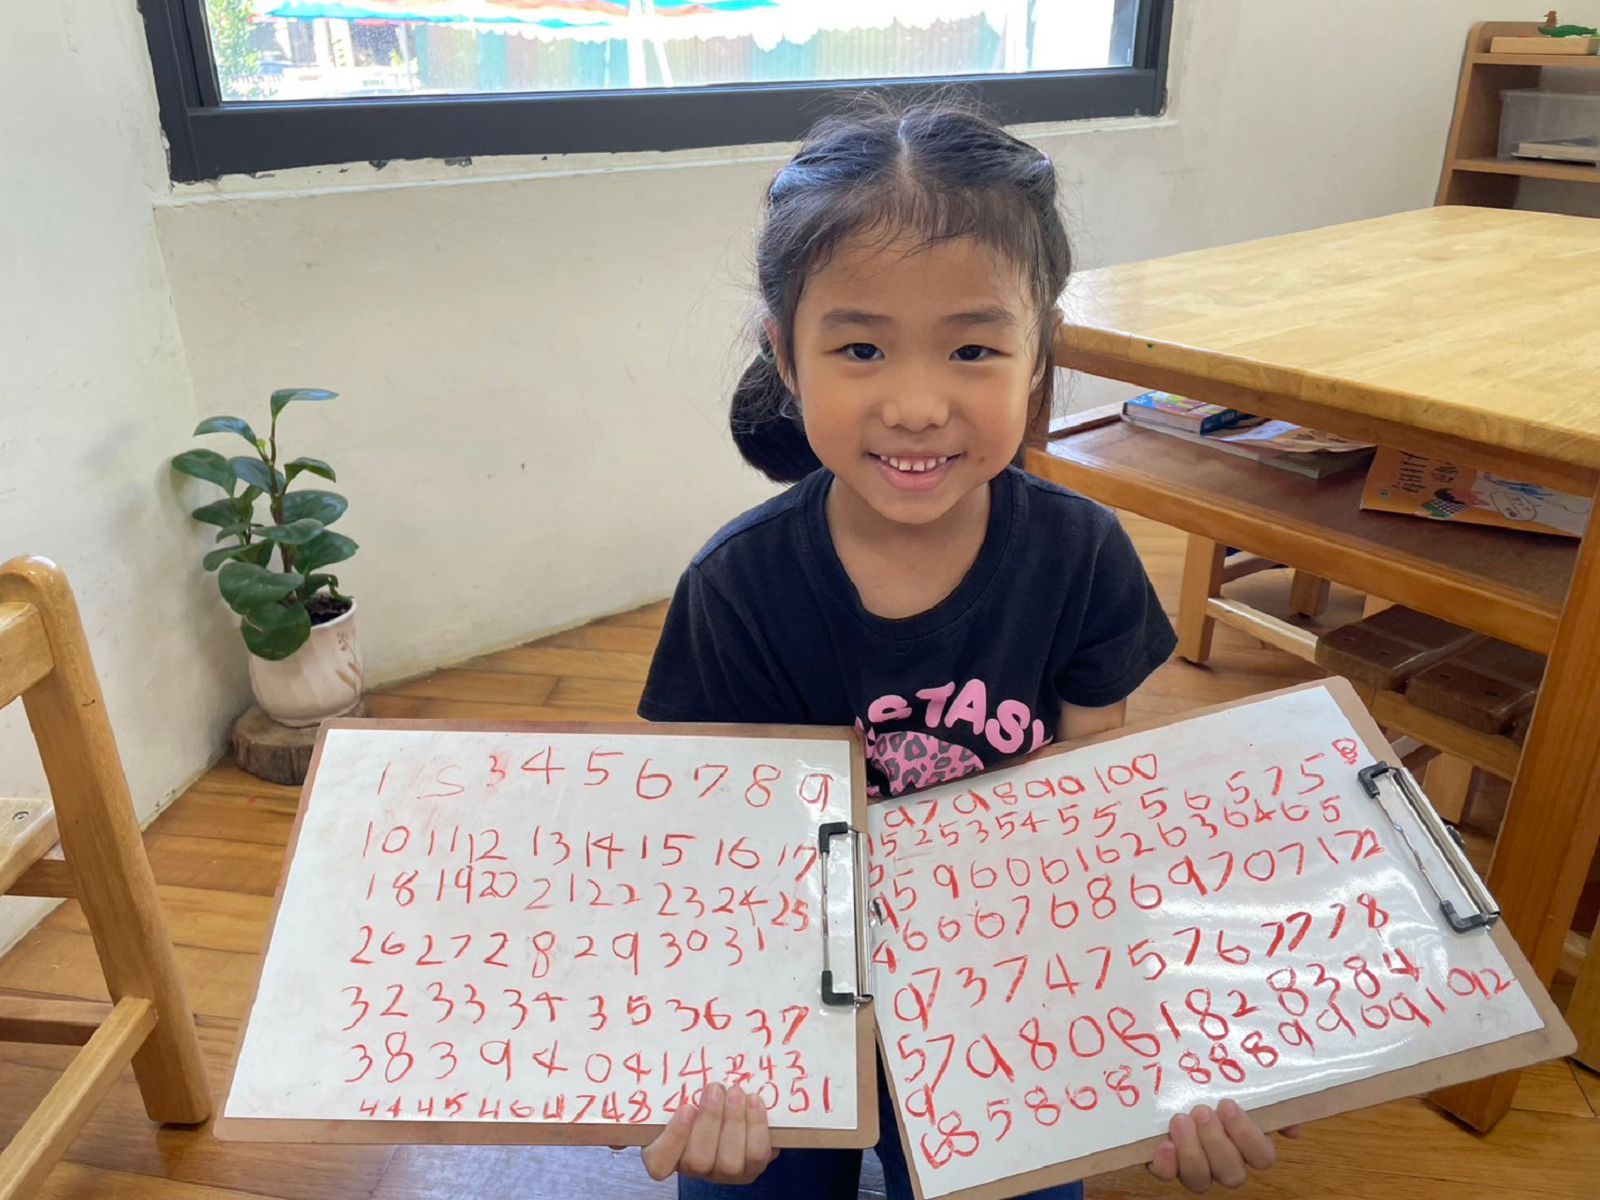 STASY
1 2 3 4 5 6 7 8 9
10 11 12 13 14 15 16 17
18 19 20 21 22 23 24 25
26 27 28 29 30 31
32 33 34 35 36 37
38 39 40 41 42 43
44 45 46 47 48 49 051
97 98 99 100
52 53 54 55 56 57 58
59 60 61 62 63 64 65
66 67 68 69 70 71 72
73 74 75 76 77 78
79 80 81 82 83 84
85 86 87 88 89 90 91 92